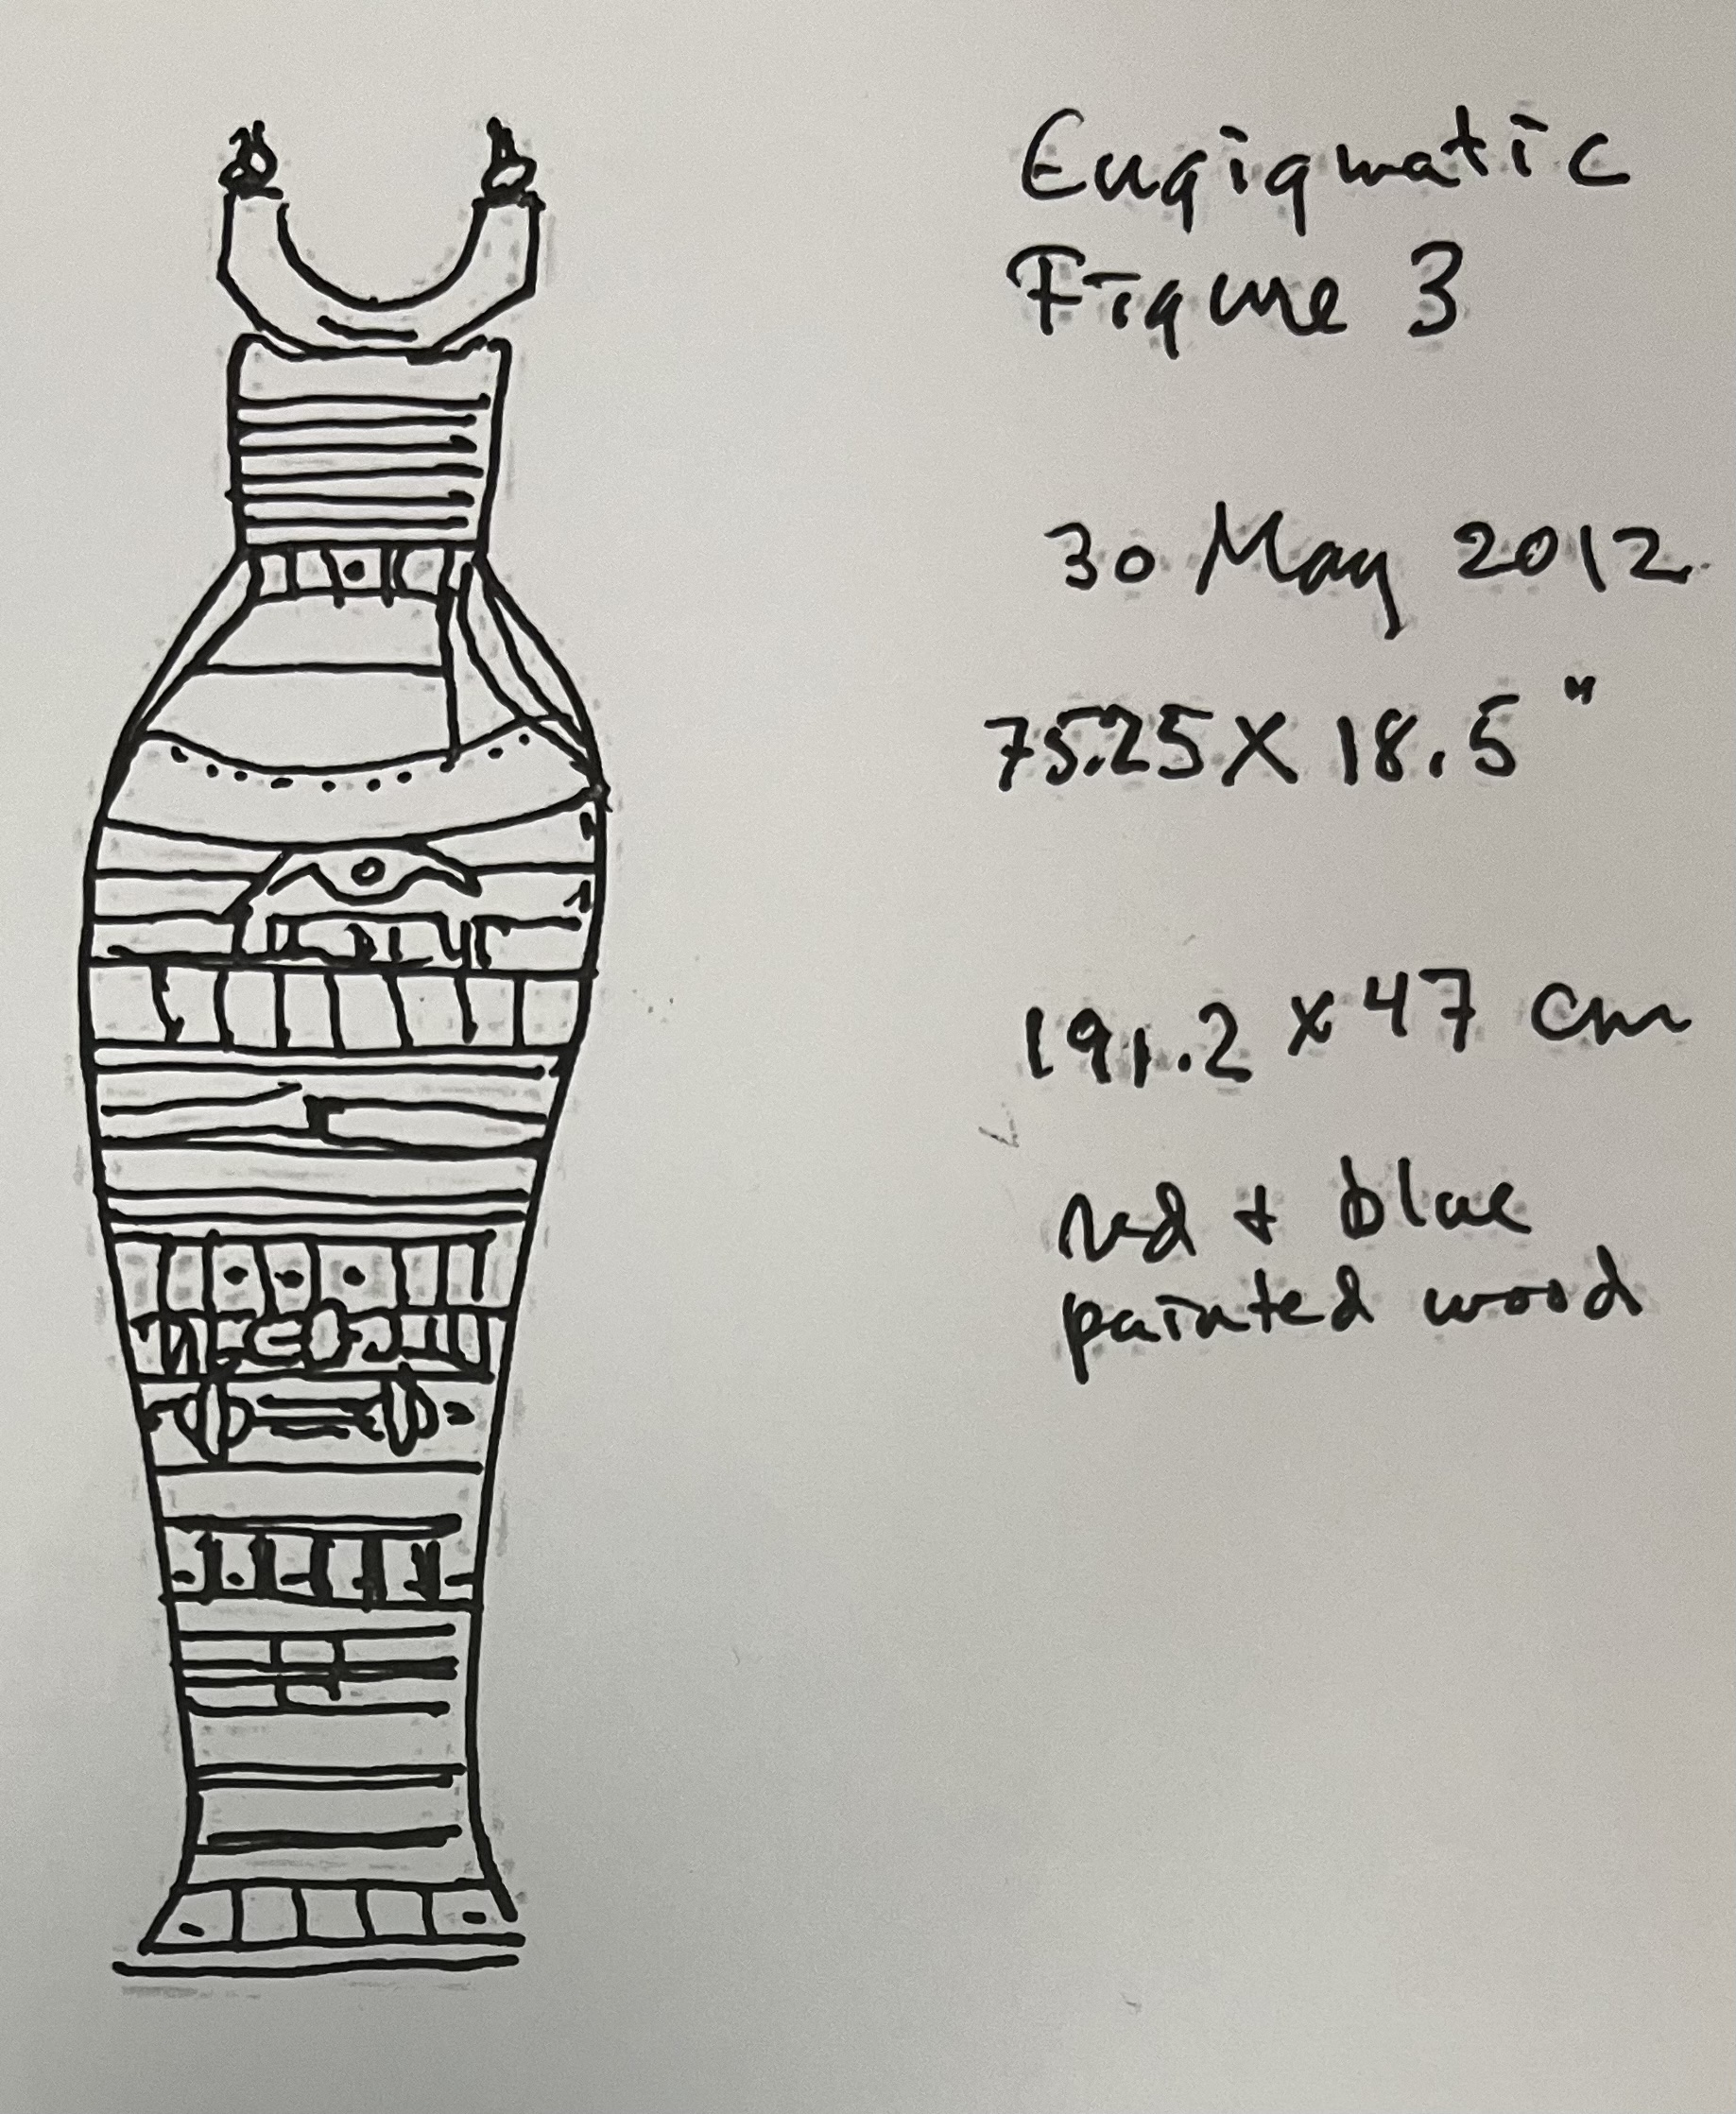 Engigmatic
Figure 3
30 May 2012
75.25 X 18.5"
191.2 x 47 cm
red + blue
painted wood